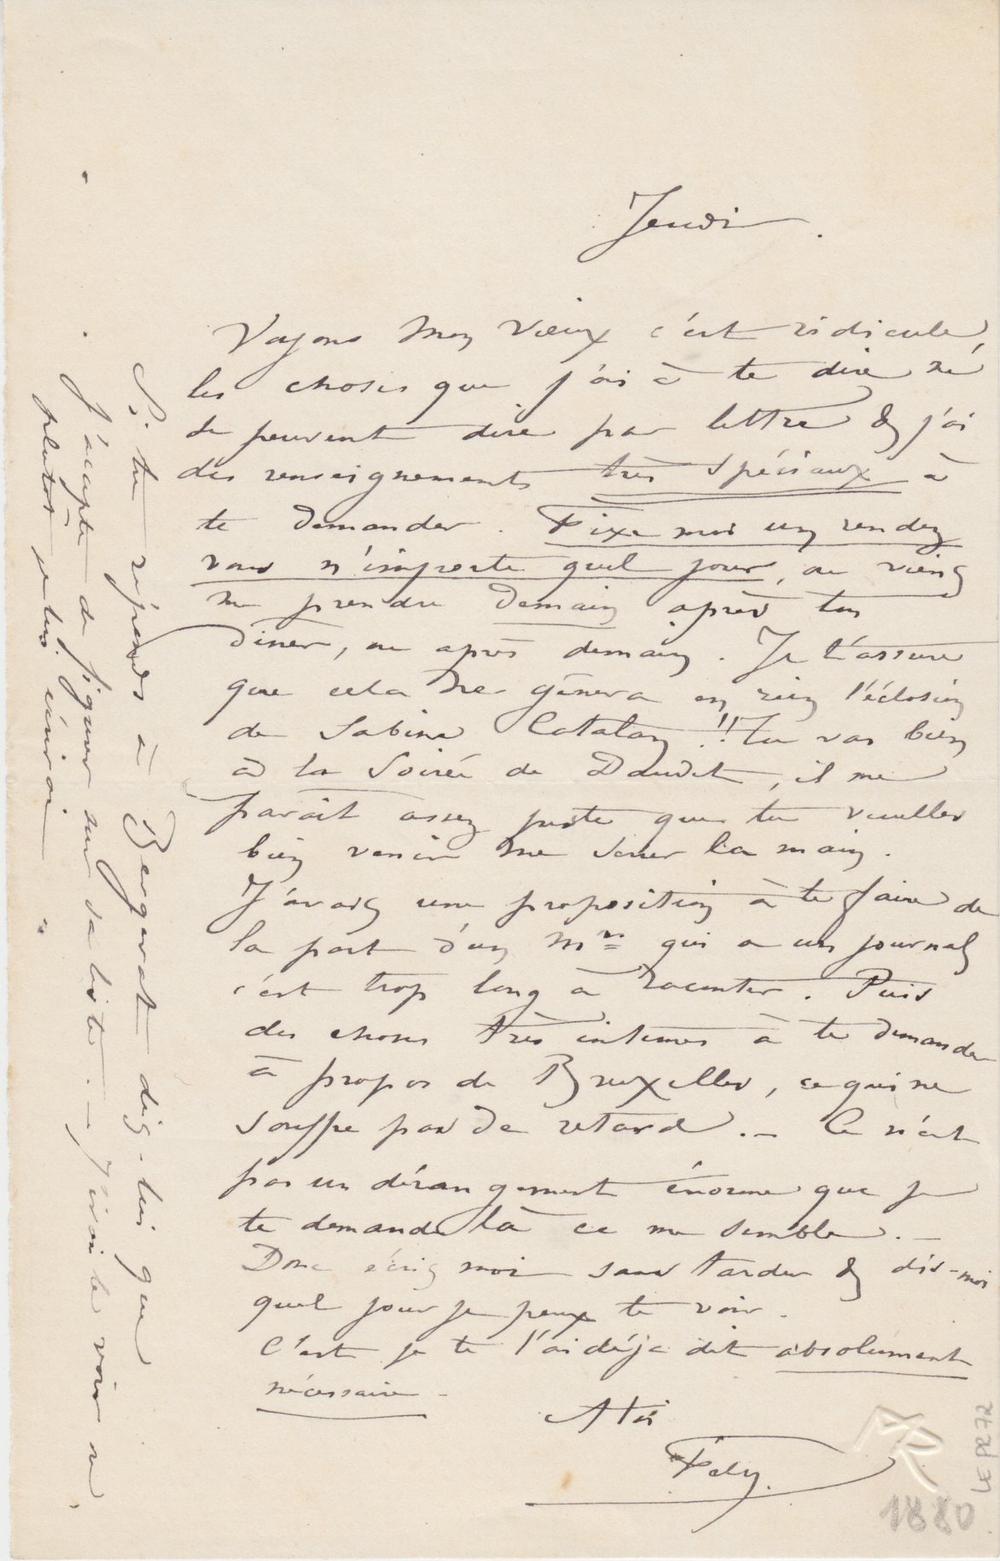 Jeudi.
Voyons mon vieux c'est ridicule,
les choses que j'ai à te dire ne
se peuvent dire par lettre & j'ai
des renseignements très spéciaux à
te demander. Fixe moi un rendez
vous n'importe quel jour, ou viens
me prendre demain après ton
dîner, ou après demain. Je t'assure
que cela ne gênera en rien l'éclosion
de Sabine Catalan !! Tu vas bien
à la Soirée de Daudet, il me
paraît assez juste que tu veuilles
bien venir me serrer la main.
J'avais une proposition à te faire de
la part d'un Mr qui a un journal
c'est trop long à raconter. Puis
des choses très intimes à te demander
à propos de Bruxelles, ce qui ne
souffre pas de retard. — Ce n'est
pas un dérangement énorme que je
te demande là ce me semble. —
Donc écris moi sans tarder & dis-moi
quel jour je peux te voir.
C'est je te l'ai déjà dit absolument
nécessaire —
A toi
Fély.
Si tu réponds à Bergerat dis-lui que
j'accepte de figurer sur sa liste. — J'irai le voir
plutôt je lui écrirai
1880
LEPR 72